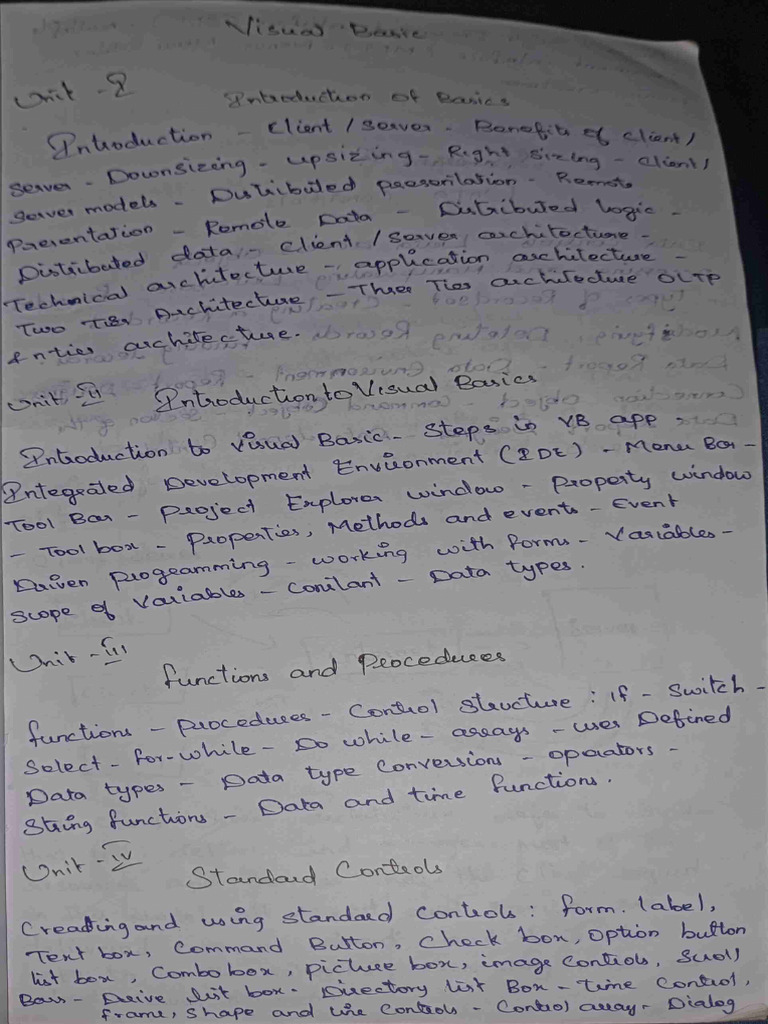 Visual Basic
Unit - I Introduction of Basics
Introduction - Client / Server - Benefits of Client /
Server - Downsizing - upsizing - Right sizing - Client /
Server models - Distributed presentation - Remote
Presentation - Remote Data - Distributed logic -
Distributed data - Client / Server architecture -
Technical architecture - application architecture -
Two Tier Architecture - Three Tier architecture OLTP
& n-tier architecture.
Unit - II Introduction to Visual Basics
Introduction to Visual Basic - Steps in VB app -
Integrated Development Environment (IDE) - Menu Bar -
Tool Bar - Project Explorer window - Property window
- Tool box - Properties, Methods and events - Event
Driven progamming - working with forms - Variables -
Scope of Variables - Constant - Data types.
Unit - III
Functions and Procedures
functions - procedures - Control Structure : if - Switch -
Select - for - while - Do while - arrays - user Defined
Data types - Data type Conversions - operators -
String functions - Data and time functions.
Unit - IV
Standard Controls
Creating and using standard controls : form. label,
Text box, Command Button, Check box, Option button
list box, Combo box, picture box, image controls, Scroll
Bars - Drive list box. Directory list Box - time Control,
frame, shape and line controls - Control array - Dialog